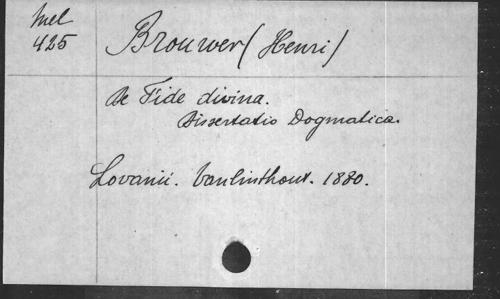 Mel
425
Brouwer (Henri)
De Fide divina.
Dissertatio Dogmatica.
Lovanii. Vanlinthout. 1880.